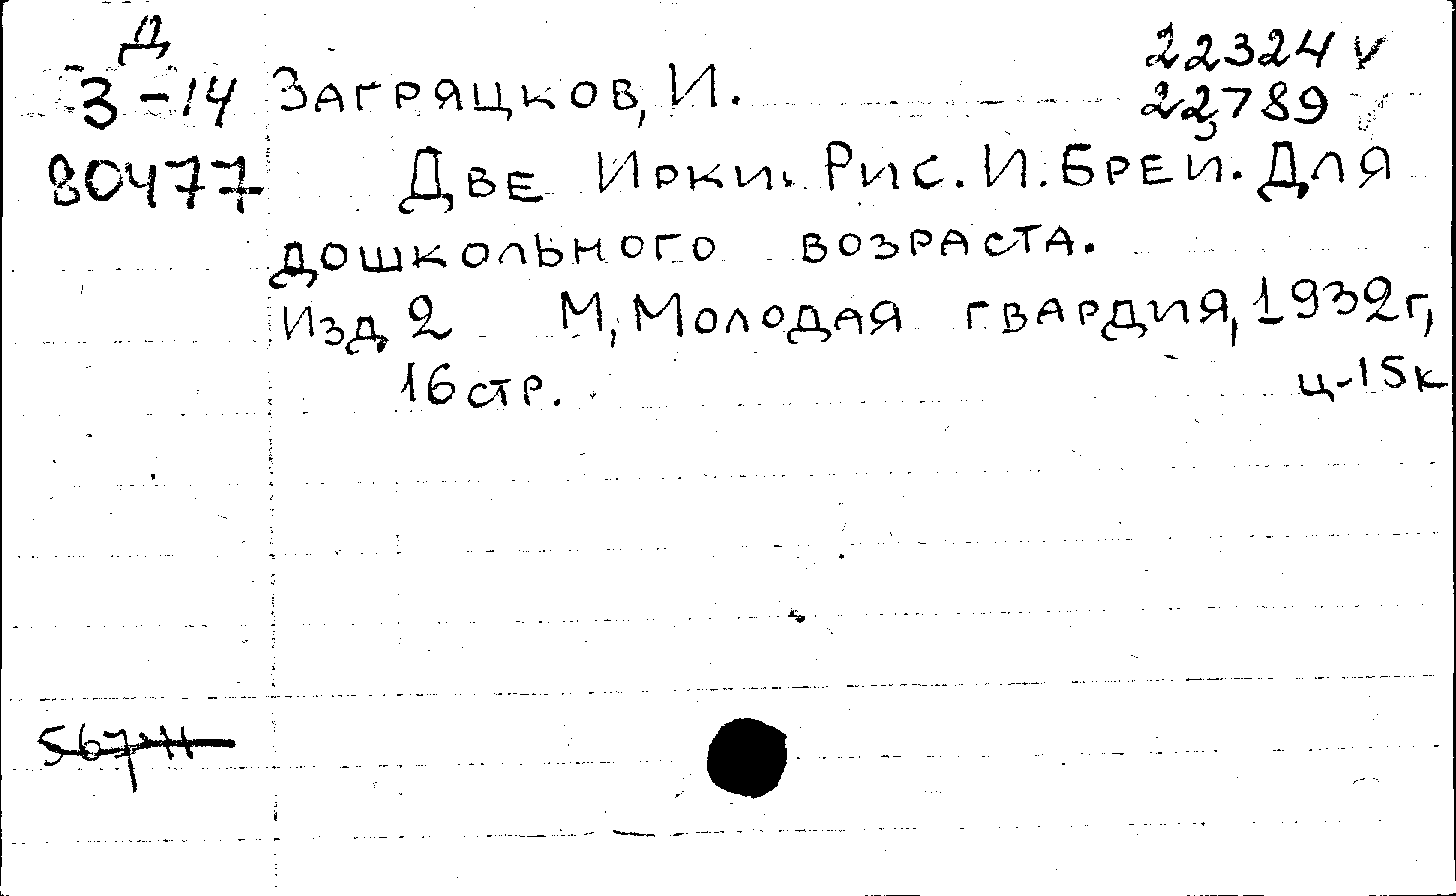 Д
22324 v
З-14 Загряцков, И.
22789
80477 Две Ирки. Рис. И. Брей. Для
дошкольного возраста.
Изд 2 М, Молодая гвардия, 1932г,
16 стр. ц-15к